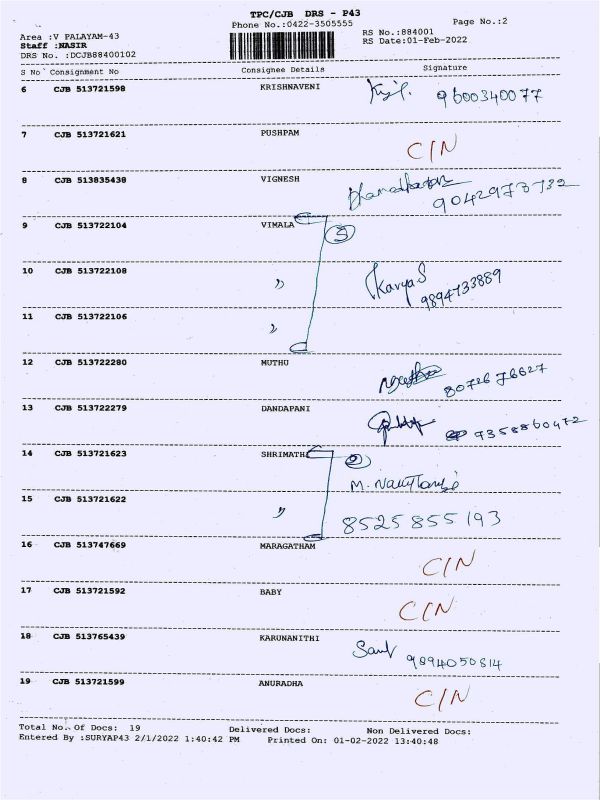 TPC/CJB DRS - P43
Phone No.:0422-3505555
Page No.:2
Area :V PALAYAM-43
RS No.:884001
Staff :NASIR
RS Date:01-Feb-2022
DRS No. :DCJB88400102
S No Consignment No Consignee Details Signature
6 CJB 513721598 KRISHNAVENI 9600340077
7 CJB 513721621 PUSHPAM C/N
8 CJB 513835438 VIGNESH
9042973732
9 CJB 513722104 VIMALA 3
10 CJB 513722108 〃 Kavya S
9894733889
11 CJB 513722106 〃
12 CJB 513722280 MUTHU
8072676627
13 CJB 513722279 DANDAPANI
9358860472
14 CJB 513721623 SHRIMATHI 2
M.
15 CJB 513721622 〃 8525855193
16 CJB 513747669 MARAGATHAM C/N
17 CJB 513721592 BABY C/N
18 CJB 513765439 KARUNANITHI
9894050814
19 CJB 513721599 ANURADHA C/N
Total No. Of Docs: 19 Delivered Docs: Non Delivered Docs:
Entered By :SURYAP43 2/1/2022 1:40:42 PM Printed On: 01-02-2022 13:40:48